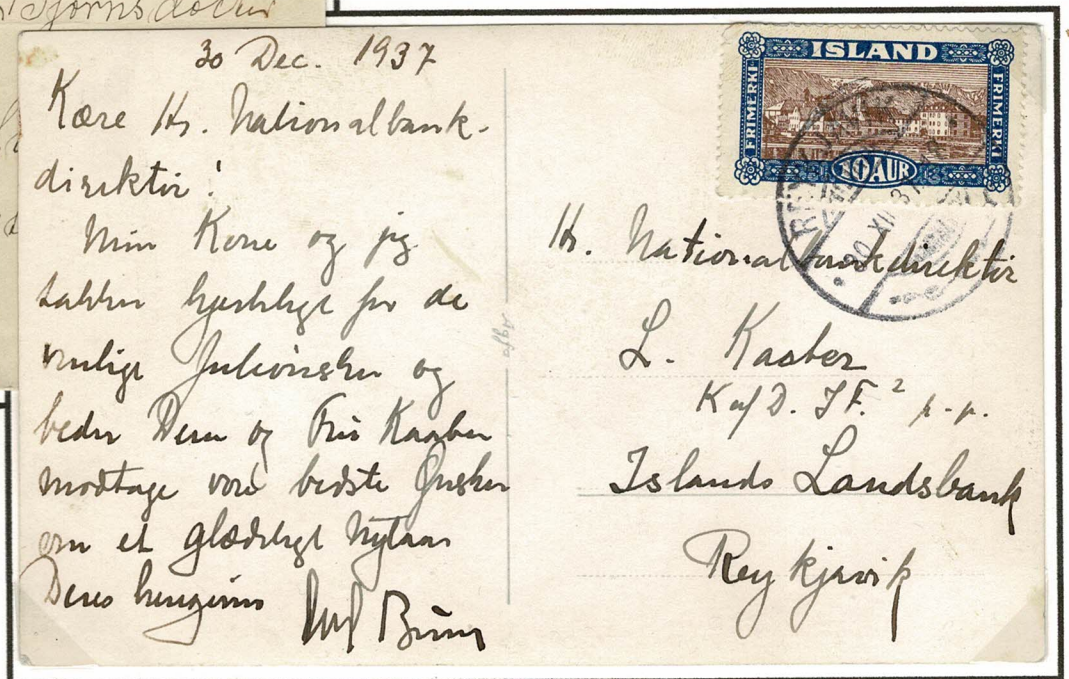 30 Dec. 1937
Kære Hr. Nationalbank-
direktør!
Min Kone og jeg
takker hjerteligt for de
venlige Juleønsker og
beder Dem og Fru Kaaber
modtage vore bedste Ønsker
om et glædeligt Nytaar
Deres hengivne
ISLAND
FRIMERKI
FRIMERKI
10 AUR
REYKJAVIK
Hr. Nationalbankdirektør
L. Kaaber
K af D. I F.² p.p.
Islands Landsbank
Reykjavik